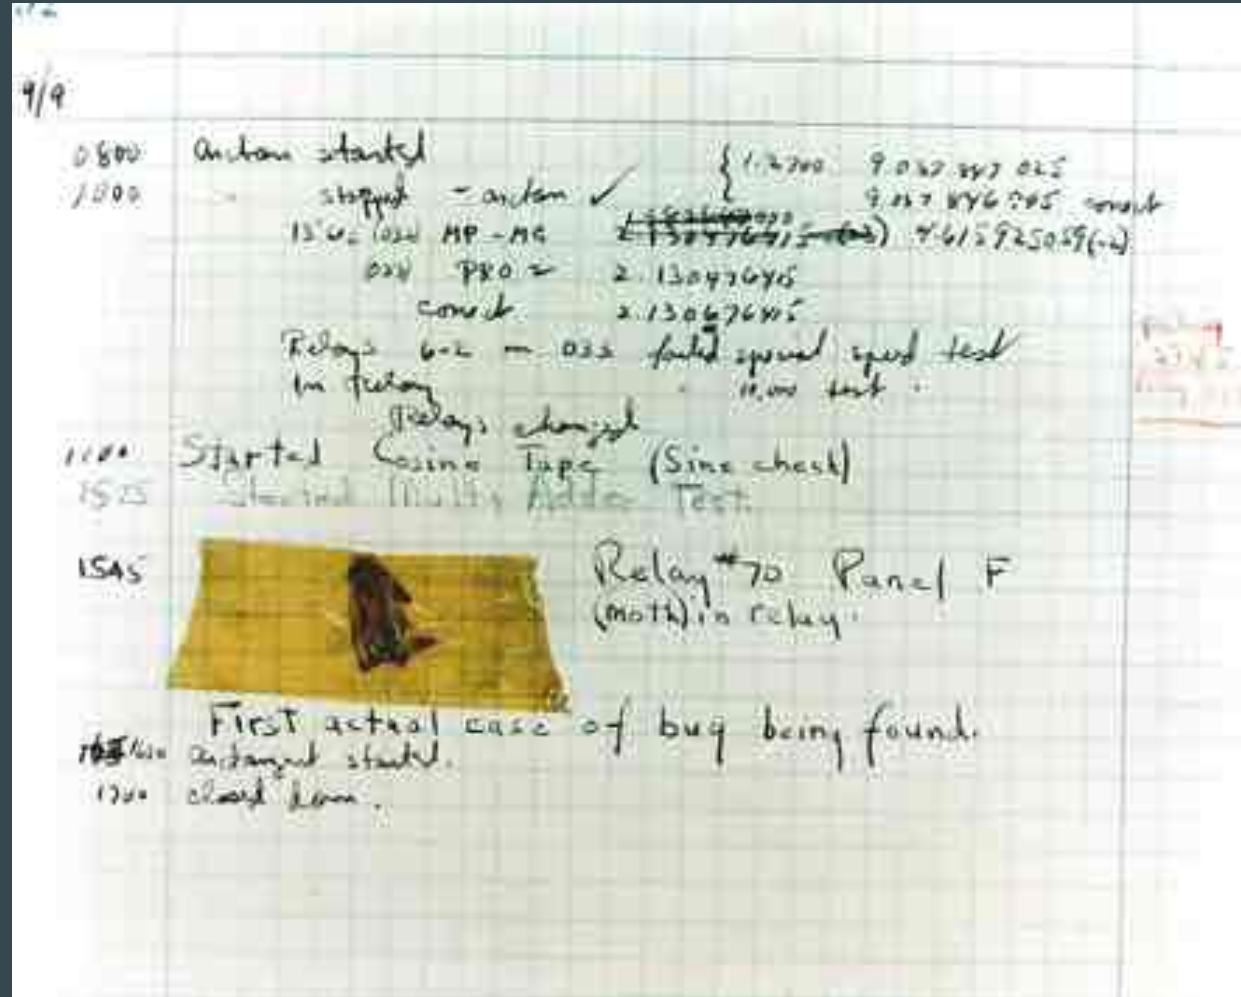 9/9
0800 antan started
1000 " stopped - antan ✓ { 1.2700 9.037 847 025
9.037 846 995 correct
13"uc (032) MP-MC 4.615925059(-2)
033 PRO 2 2.130476415
correct 2.130676415
Relays 6-2 in 033 failed special speed test
In relay " 10,000 test .
Relays changed
1100 Started Cosine Tape (Sine check)
1525 Started Multy Adder Test.
1545 Relay #70 Panel F
(moth) in relay.
First actual case of bug being found.
1630 antangent started.
1700 closed down.